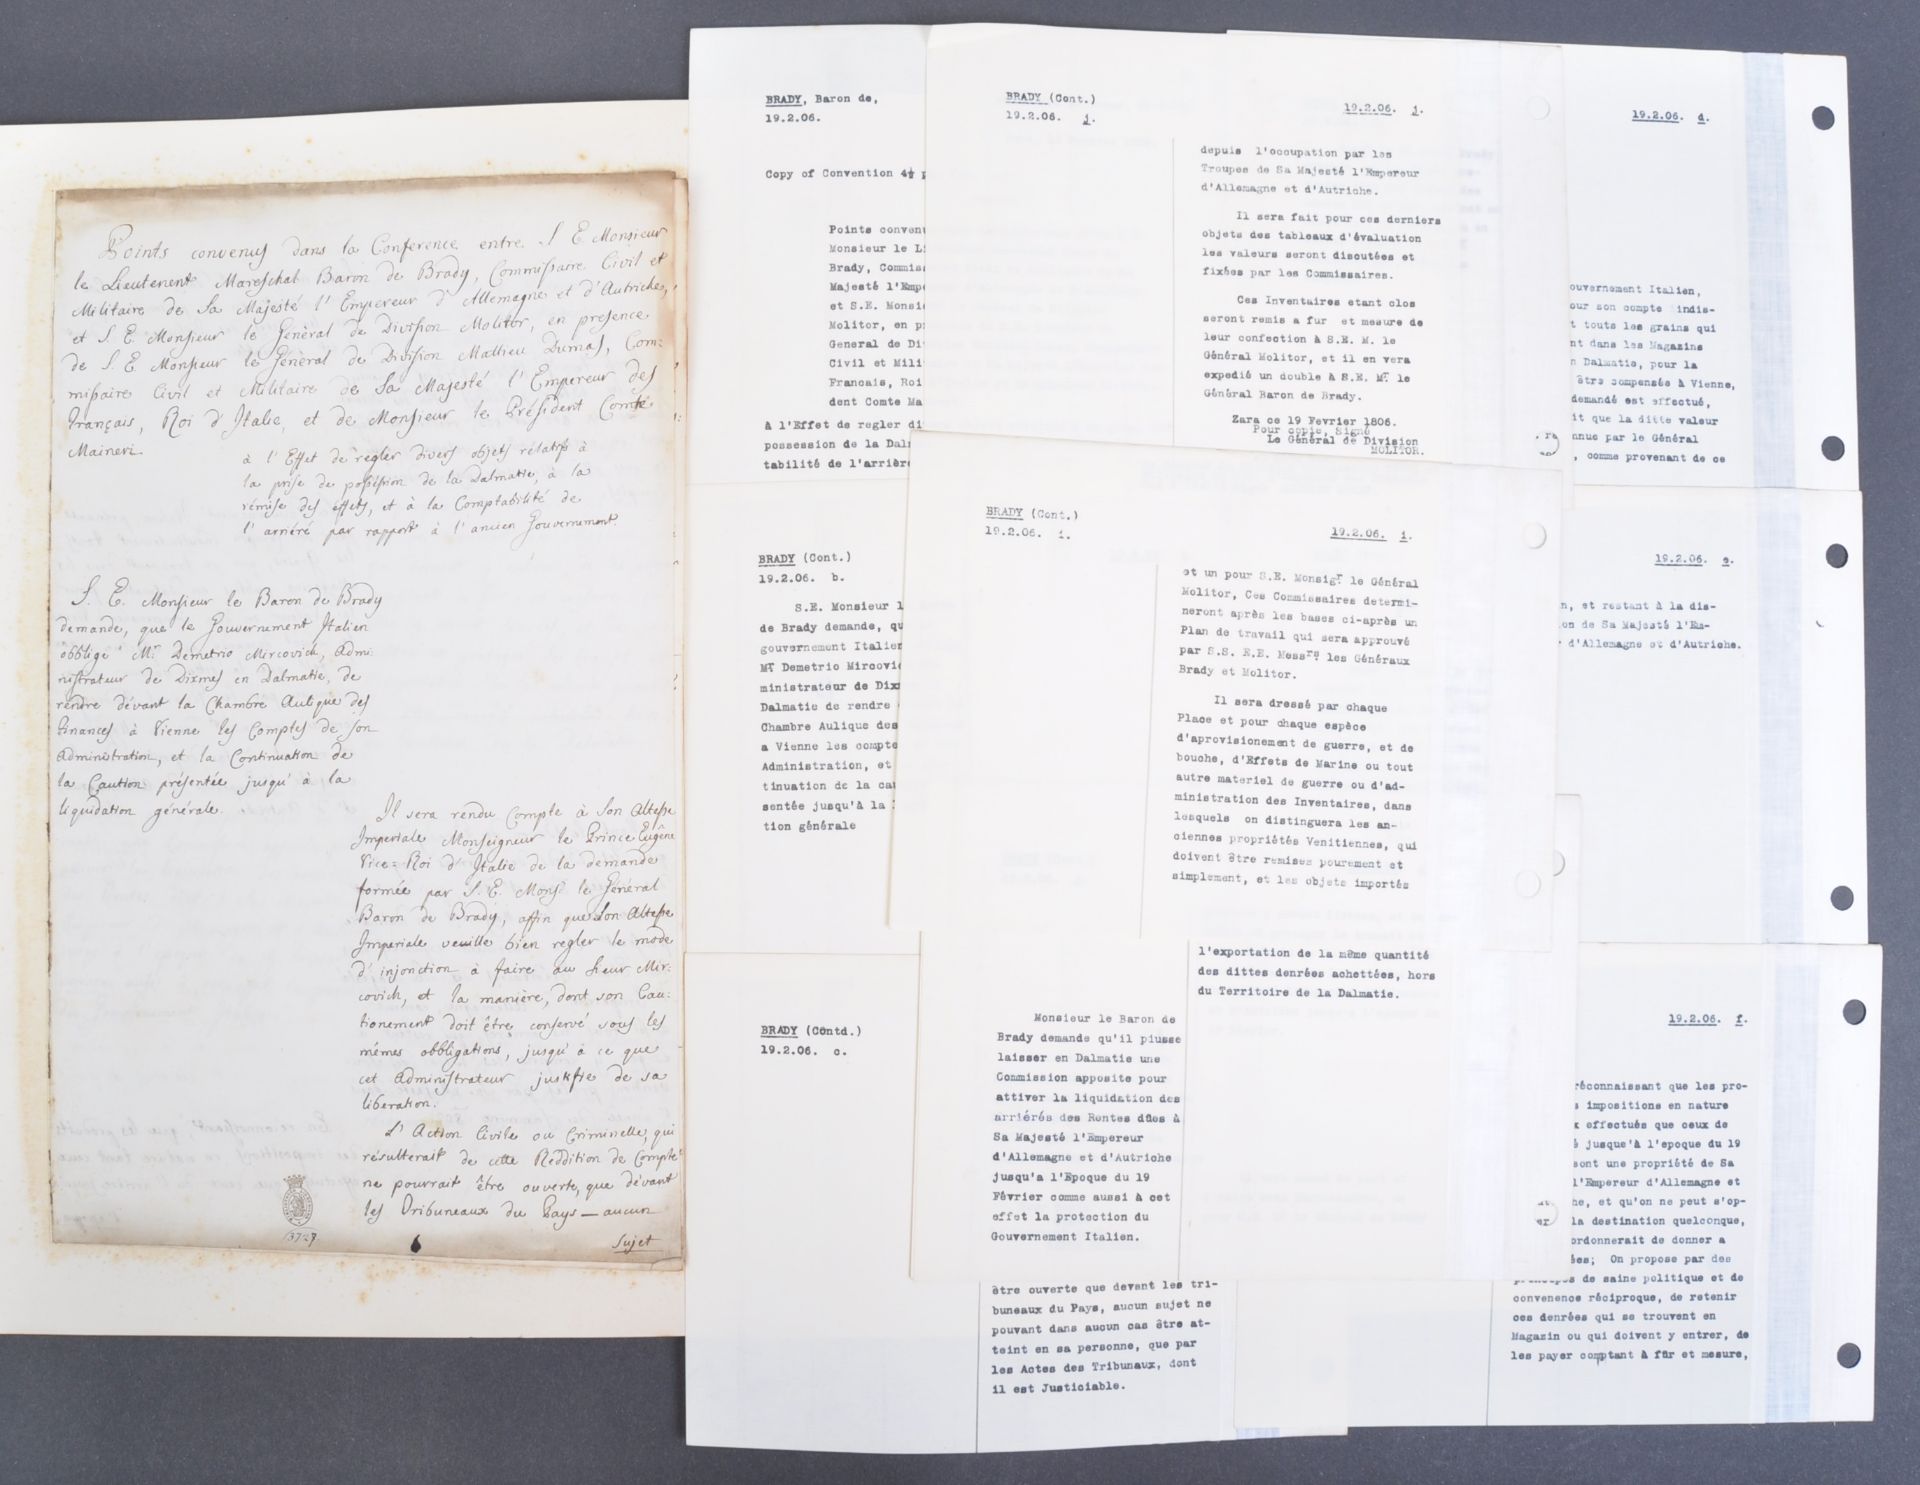 Points convenus dans la Conference entre S E Monsieur
le Lieutenent Mareschal Baron de Brady, Commissaire Civil et
Militaire de Sa Majesté l'Empereur d'Allemagne et d'Autriche,
et S. E. Monsieur le Général de Division Molitor, en presence
de S. E. Monsieur le Général de Division Mathieu Dumas, Com:
missaire Civil et Militaire de Sa Majesté l'Empereur des
Français, Roi d'Italie, et de Monsieur le Président Comte
Maineri
à l'Effet de regler divers objets rélatifs à
la prise de possession de la Dalmatie, à la
rémise des effets, et à la Comptabilité de
l'arriéré par rapport à l'ancien Gouvernement.
S. E. Monsieur le Baron de Brady
demande, que le Gouvernement Italien
obblige Mr. Demetrio Mircovich, Admi:
nistrateur de Dixmes en Dalmatie, de
rendre dévant la Chambre Aulique des
Finances à Vienne les Comptes de son
Administration, et la Continuation de
la Caution présentée jusqu'à la
liquidation générale.
Il sera rendu Compte à Son Altesse
Imperiale Monseigneur le Prince Eugêne
Vice=Roi d'Italie de la demande
formée par S. E. Monsr le Général
Baron de Brady, affin que Son Altesse
Imperiale veuille bien regler le mode
d'injonction à faire au Sieur Mir:
covich, et la manière, dont son Cau:
tionement doit être conservé sous les
mêmes obbligations, jusqu'à ce que
cet Administrateur justifie de sa
liberation.
L'Action Civile ou Criminelle, qui
résulterait de cette Reddition de Compte
ne pourrait être ouverte, que dévant
les Tribuneaux du Pays — aucun
Sujet
BRADY, Baron de,
19.2.06.
Copy of Convention 4½ p
Points convenu
Monsieur le Li
Brady, Commiss
Majesté l'Empe
et S.E. Monsie
Molitor, en pr
General de Di
Civil et Mili
Francais, Roi
dent Comte Ma
à l'Effet de regler di
possession de la Dalm
tabilité de l'arrière
BRADY (Cont.)
19.2.06. b.
S.E. Monsieur l
de Brady demande, qu
gouvernement Italien
Mr Demetrio Mircovic
ministrateur de Dix
Dalmatie de rendre
Chambre Aulique des
a Vienne les compte
Administration, et
tinuation de la cau
sentée jusqu'à la
tion générale
BRADY (Contd.)
19.2.06. c.
être ouverte que devant les tri-
buneaux du Pays, aucun sujet ne
pouvant dans aucun cas être at-
teint en sa personne, que par
les Actes des Tribunaux, dont
il est Justiciable.
BRADY (Cont.)
19.2.06. j.
19.2.06. j.
depuis l'occupation par les
Troupes de Sa Majesté l'Empereur
d'Allemagne et d'Autriche.
Il sera fait pour ces derniers
objets des tableaux d'évaluation
les valeurs seront discutées et
fixées par les Commissaires.
Ces Inventaires etant clos
seront remis a fur et mesure de
leur confection à S.E. M. le
Général Molitor, et il en vera
expedié un double à S.E. Mr le
Général Baron de Brady.
Zara ce 19 Fevrier 1806.
Pour copie, Signé
Le Général de Division
MOLITOR.
BRADY (Cont.)
19.2.06. i.
19.2.06. i.
et un pour S.E. Monsigr le Général
Molitor, Ces Commissaires determi-
neront après les bases ci-après un
Plan de travail qui sera approuvé
par S.S. E.E. Messrs les Généraux
Brady et Molitor.
Il sera dressé par chaque
Place et pour chaque espèce
d'aprovisionement de guerre, et de
bouche, d'Effets de Marine ou tout
autre materiel de guerre ou d'ad-
ministration des Inventaires, dans
lesquels on distinguera les an-
ciennes propriétés Venitiennes, qui
doivent être remises pourement et
simplement, et les objets importés
l'exportation de la même quantité
des dittes denrées achettées, hors
du Territoire de la Dalmatie.
Monsieur le Baron de
Brady demande qu'il piusse
laisser en Dalmatie une
Commission apposite pour
attiver la liquidation des
arriérés des Rentes dûes à
Sa Majesté l'Empereur
d'Allemagne et d'Autriche
jusqu'a l'Epoque du 19
Février comme aussi à cet
effet la protection du
Gouvernement Italien.
19.2.06. d.
ouvernement Italien,
our son compte indis-
t touts les grains qui
nt dans les Magazins
n Dalmatie, pour la
être compensée à Vienne,
demandé est effectué,
it que la ditte valeur
nnue par le Général
, comme provenant de ce
19.2.06. e.
n, et restant à la dis-
on de Sa Majesté l'Em-
d'Allemagne et d'Autriche.
19.2.06. f.
réconnaissant que les pro-
s impositions en nature
x effectués que ceux de
é jusque'à l'epoque du 19
sont une propriété de Sa
l'Empereur d'Allemagne et
he, et qu'on ne peut s'op-
la destination quelconque,
ordonnerait de donner a
ées; On propose par des
principes de saine politique et de
convenence réciproque, de retenir
ces denrées qui se trouvent en
Magazin ou qui doivent y entrer, de
les payer comptant à fûr et mesure,